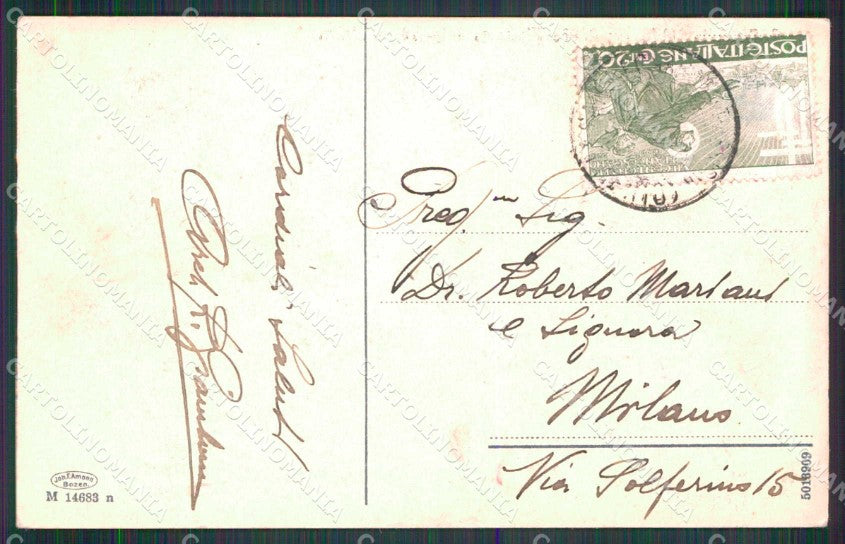 Cordiali Saluti
Arch R.
POSTE ITALIANE C. 20
Preg.mo Sig.
Dr. Roberto Mariani
e Signora
Milano
Via Solferino 15
Joh. F. Amonn
Bozen.
M 14683 n
5018969
CARTOLINOMANIA